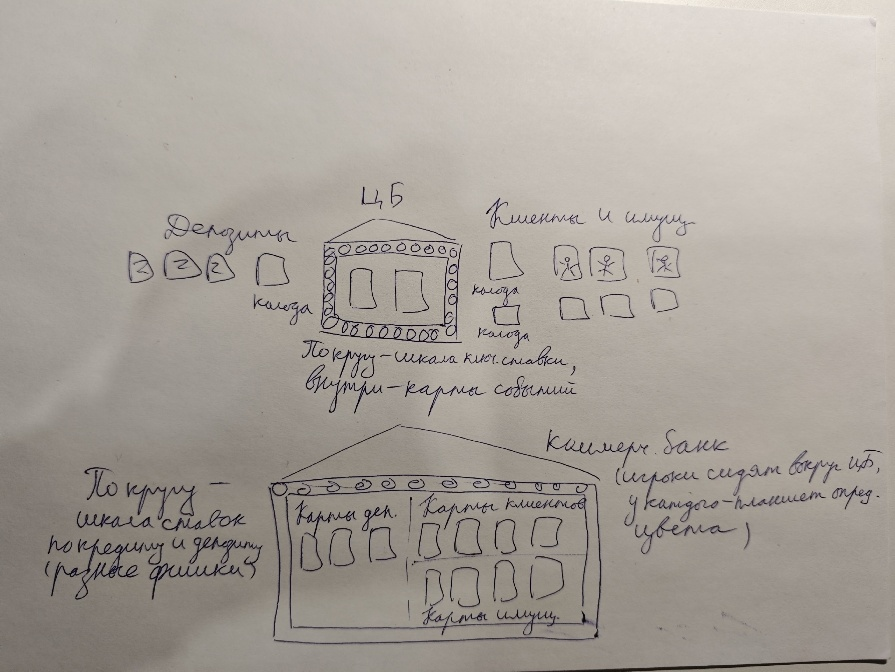 ЦБ
Депозиты
3 2 2
колода
Клиенты и имущ.
колода
колода
По кругу - шкала ключ. ставки,
внутри - карты событий
Коммерч. банк
(игроки сидят вокруг ЦБ,
у каждого - планшет опред.
цвета)
По кругу -
шкала ставок
по кредиту и депозиту
(разные фишки)
Карты деп.
Карты клиентов
Карты имущ.